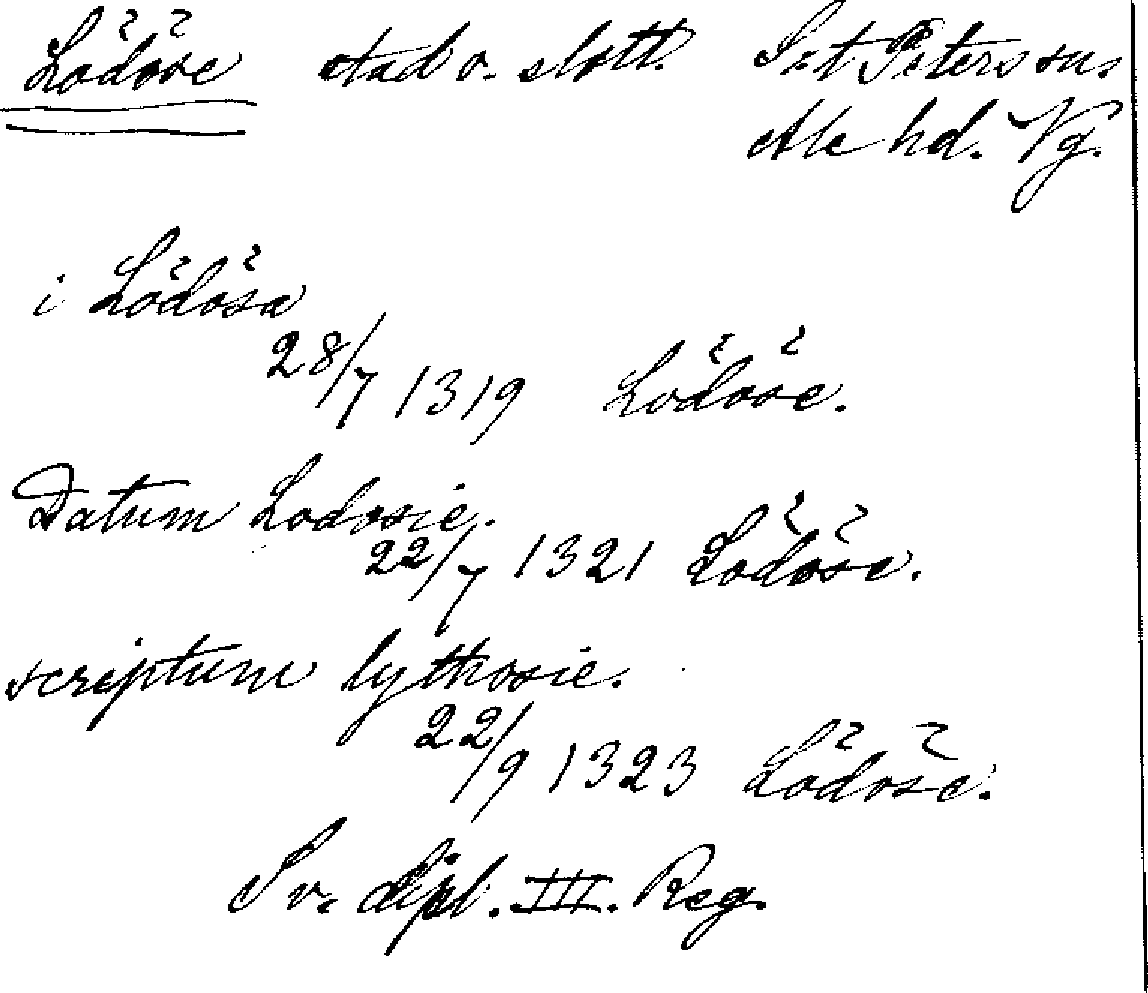 Lödöse stad o. slott. S:t Peters sn.
Ale hd. Vg.
i Lödösa
28/7 1319 Lödöse.
Datum Lodosie.
22/7 1321 Lödöse.
scriptum lythosie.
22/9 1323 Lödöse.
Sv. dipl. III. Reg.